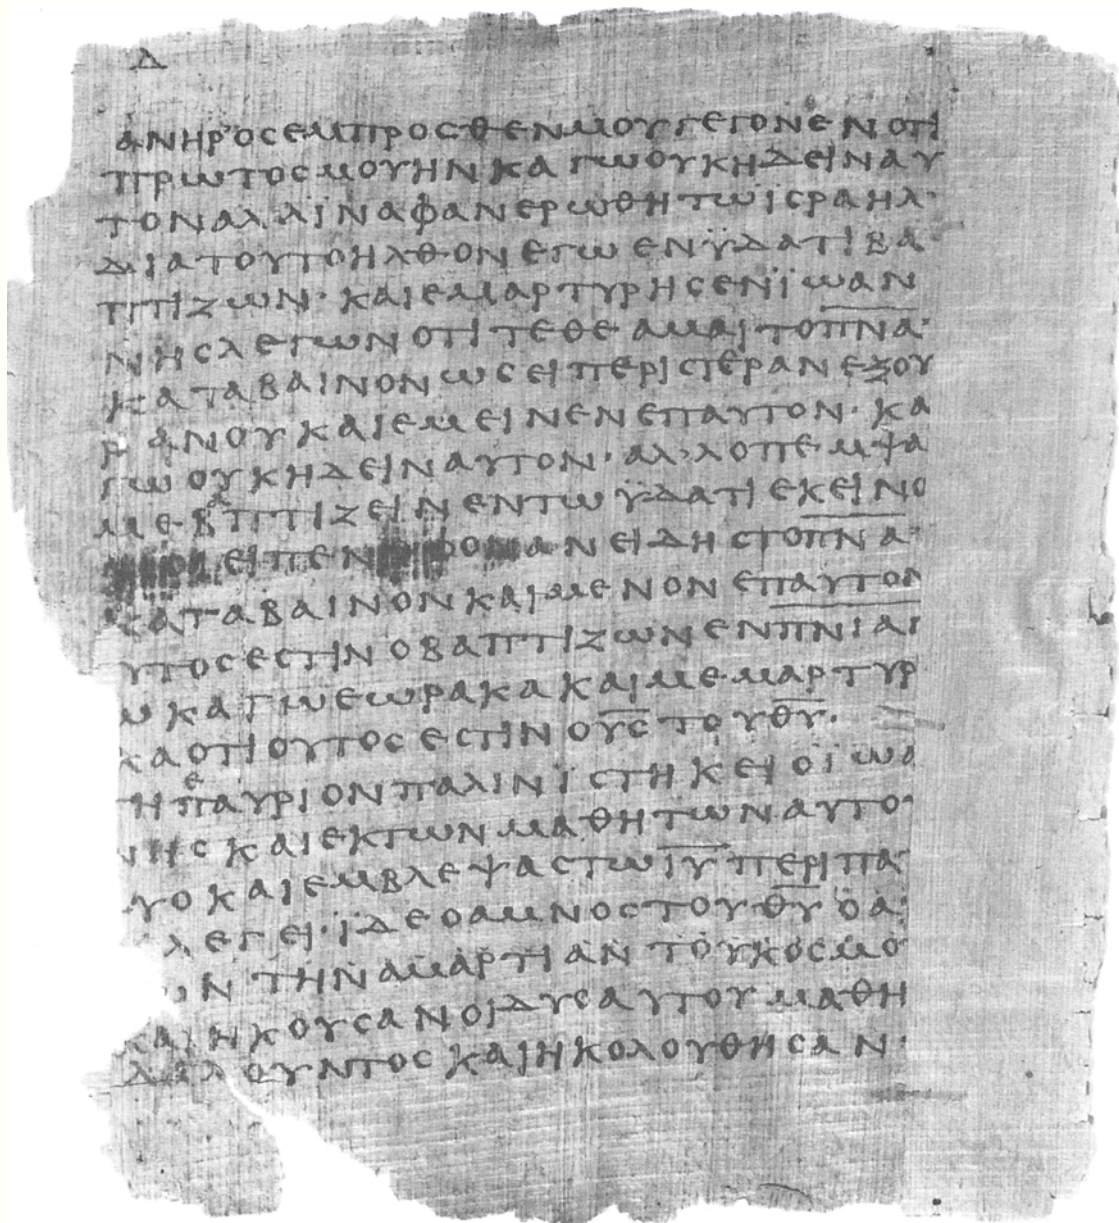 Δ
ΑΝΗΡΟϹΕΜΠΡΟϹΘΕΝΜΟΥΓΕΓΟΝΕΝΟΤΙ
ΠΡΩΤΟϹΜΟΥΗΝΚΑΓΩΟΥΚΗΔΕΙΝΑΥ
ΤΟΝΑΛΛΙΝΑΦΑΝΕΡΩΘΗΤΩΙϹΡΑΗΛ·
ΔΙΑΤΟΥΤΟΗΛΘΟΝΕΓΩΕΝΫΔΑΤΙΒΑ
ΠΤΙΖΩΝ· ΚΑΙΕΜΑΡΤΥΡΗϹΕΝΪΩΑΝ
ΝΗϹΛΕΓΩΝΟΤΙΤΕΘΕΑΜΑΙΤΟΠ̅Ν̅Α̅·
ΚΑΤΑΒΑΙΝΟΝΩϹΕΙΠΕΡΙϹΤΕΡΑΝΕΞΟΥ
ΡΑΝΟΥΚΑΙΕΜΕΙΝΕΝΕΠΑΥΤΟΝ· ΚΑ
ΓΩΟΥΚΗΔΕΙΝΑΥΤΟΝ· ΑΛ·ΛΟΠΕΜΨΑ
ΜΕΒΑΠΤΙΖΕΙΝΕΝΤΩΫΔΑΤΙΕΚΕΙΝΟ
ΕΙΠΕΝ ΑΝΕΙΔΗϹΤΟΠ̅Ν̅Α̅·
ΚΑΤΑΒΑΙΝΟΝΚΑΙΜΕΝΟΝΕΠΑΥΤΟΝ
ΥΤΟϹΕϹΤΙΝΟΒΑΠΤΙΖΩΝΕΝΠ̅Ν̅Ι̅ΑΓ
ΩΚΑΓΩΕΩΡΑΚΑΚΑΙΜΕΜΑΡΤΥΡ
ΚΑΟΤΙΟΥΤΟϹΕϹΤΙΝΟΥ̅Ϲ̅ΤΟΥΘ̅Υ̅·
ΤΗΕΠΑΥΡΙΟΝΠΑΛΙΝΪϹΤΗΚΕΙΟΪΩΑ
ΝΗϹΚΑΙΕΚΤΩΝΜΑΘΗΤΩΝΑΥΤΟΥ
ΥΟΚΑΙΕΜΒΛΕΨΑϹΤΩΙ̅Υ̅ΠΕΡΙΠΑ
ΛΕΓΕΙ·ΪΔΕΟΑΜΝΟϹΤΟΥΘ̅Υ̅ΟΑΙ
ΩΝΤΗΝΑΜΑΡΤΙΑΝΤΟΥΚΟϹΜΟΥ
ΚΑΙΗΚΟΥϹΑΝΟΙΔΥϹΑΥΤΟΥΜΑΘΗ
ΛΑΛΟΥΝΤΟϹΚΑΙΗΚΟΛΟΥΘΗϹΑΝ·